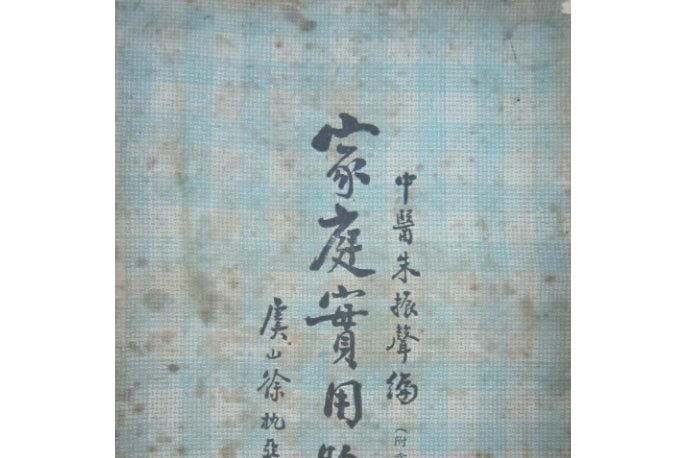 中醫朱振聲編（附
家庭實用
虞山徐枕亞